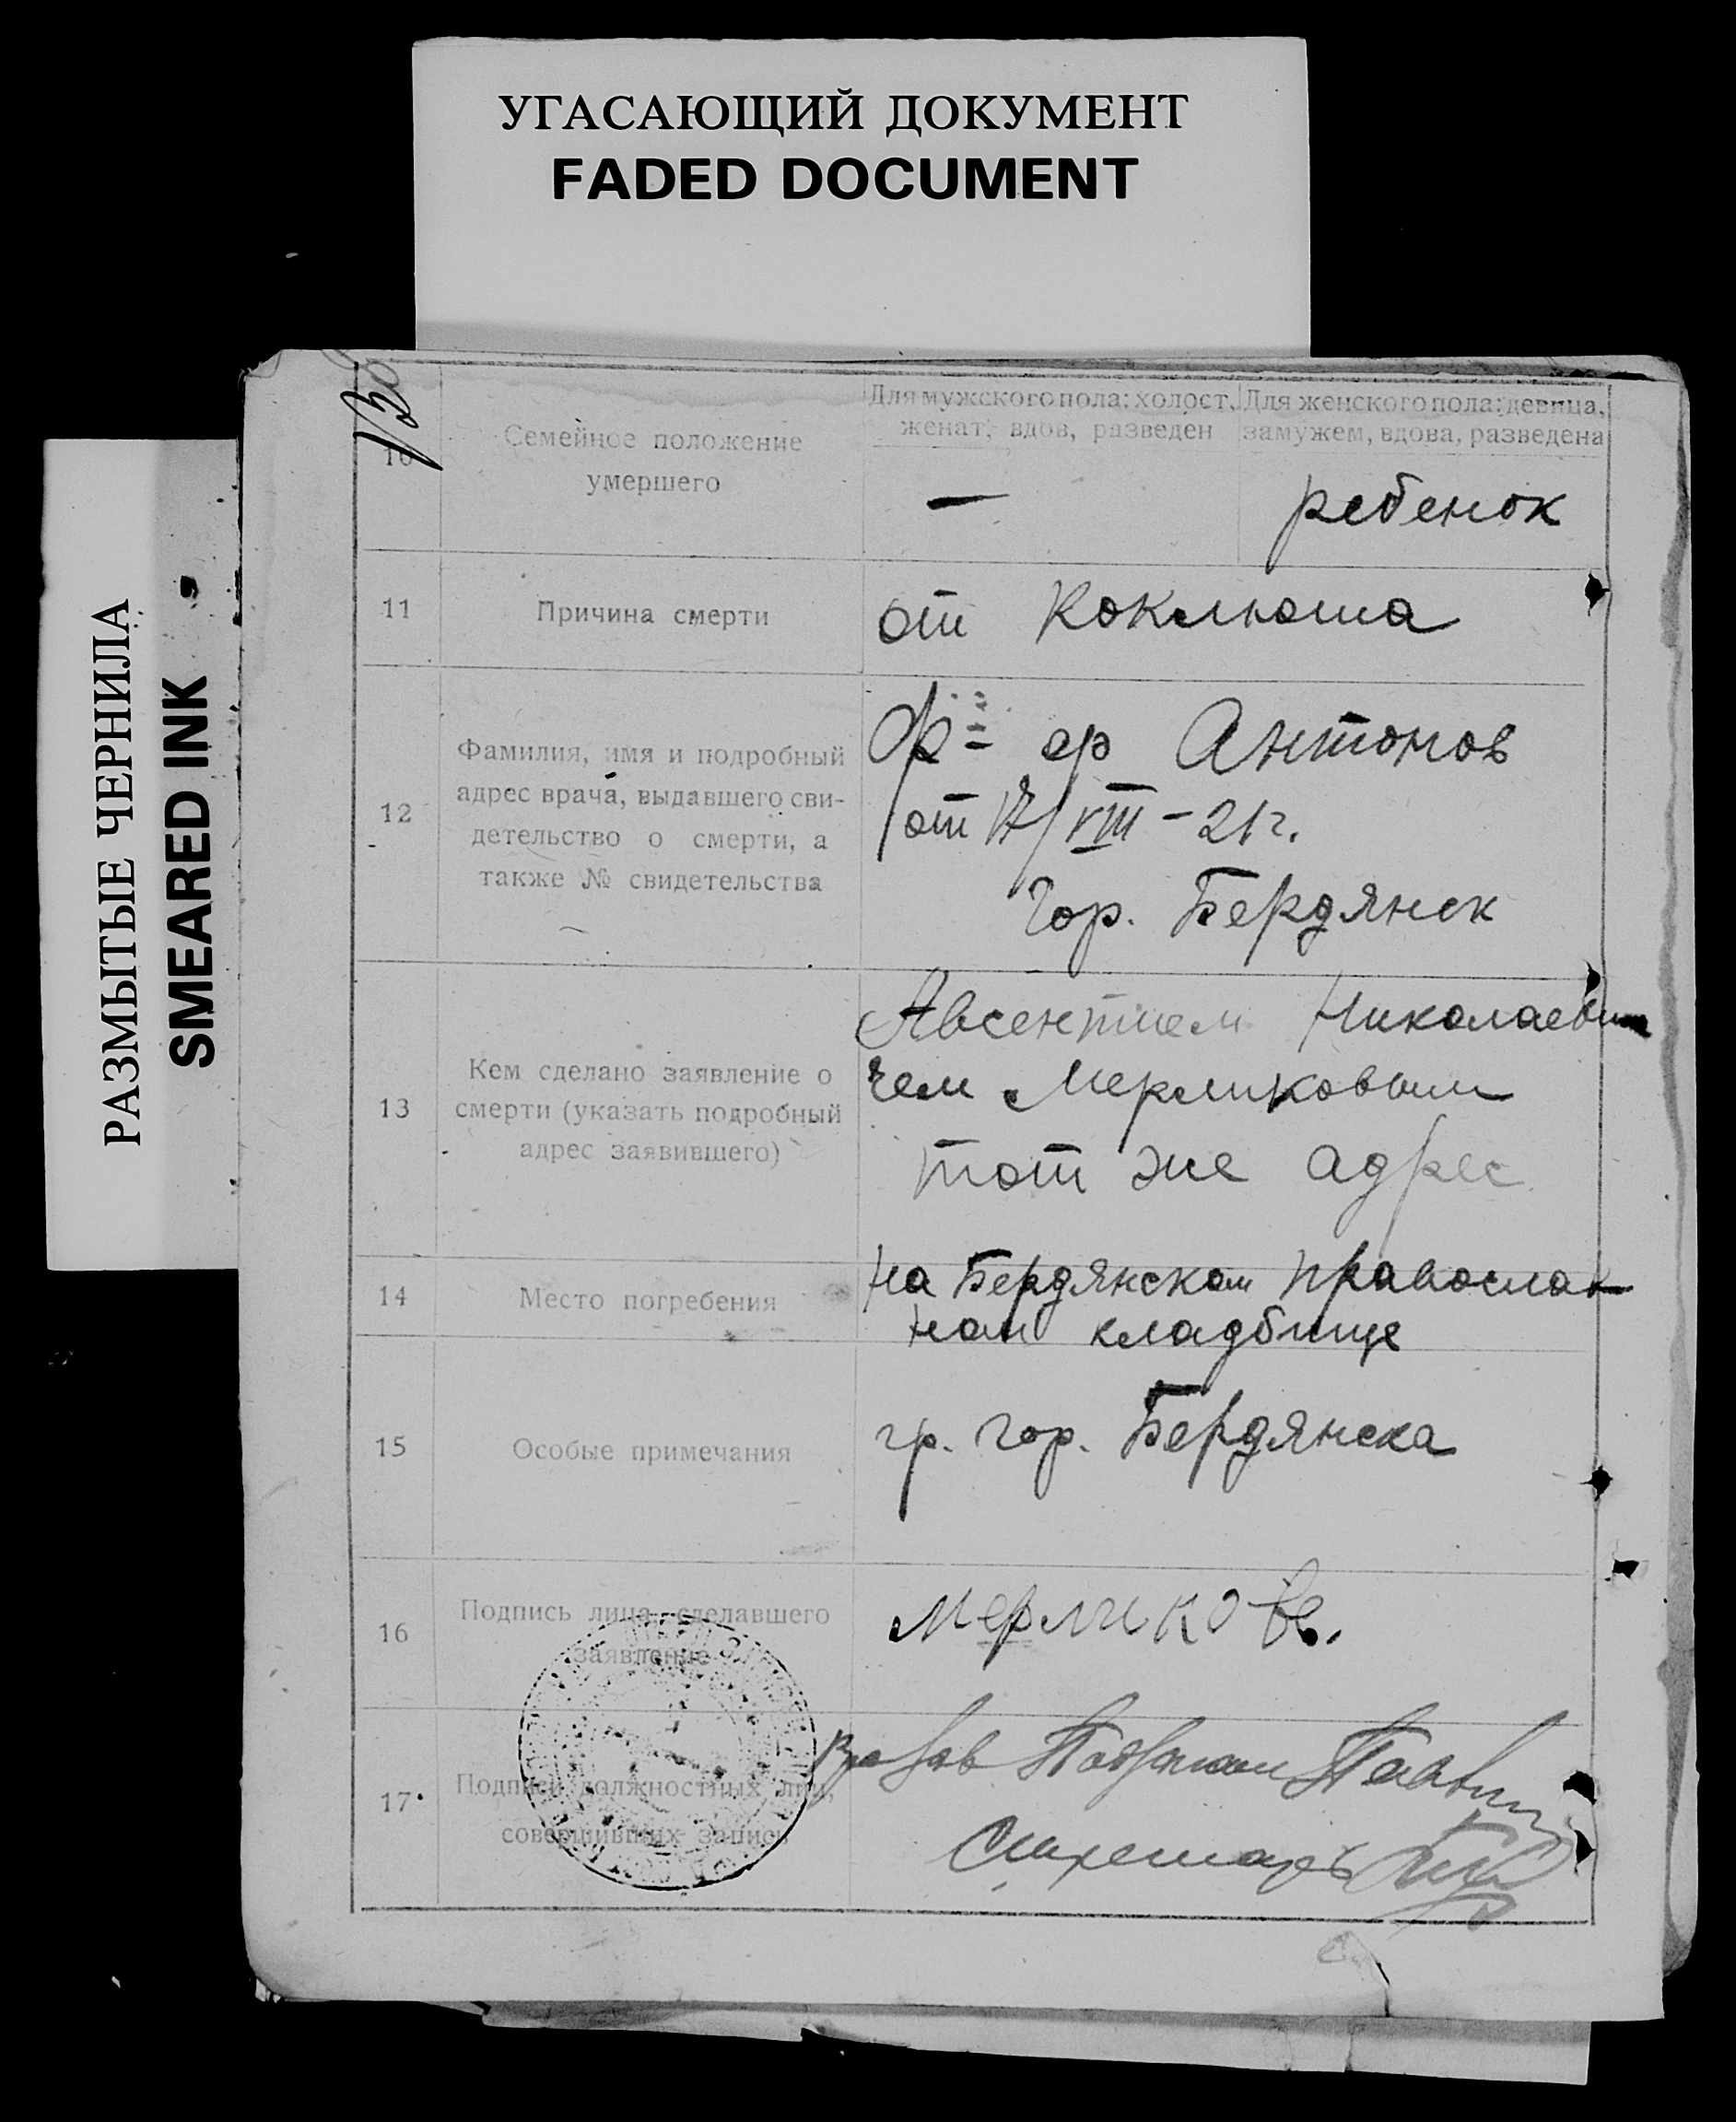 УГАСАЮЩИЙ ДОКУМЕНТ
FADED DOCUMENT
РАЗМЫТЫЕ ЧЕРНИЛА
SMEARED INK
10
Семейное положение
умершего
Для мужского пола: холост,
женат, вдов, разведен
Для женского пола: девица,
замужем, вдова, разведена
—
ребенок
11
Причина смерти
от Коклюша
12
Фамилия, имя и подробный
адрес врача, выдавшего сви-
детельство о смерти, а
также № свидетельства
Антонов
от 17/VIII - 21 г.
Гор. Бердянск
13
Кем сделано заявление о
смерти (указать подробный
адрес заявившего)
Авсентием Николаеви
чем Мерликовым
тот же адрес
14
Место погребения
на Бердянском православ
ном кладбище
15
Особые примечания
гр. гор. Бердянска
16
Подпись лица, сделавшего
заявление
Мерликовъ.
17
Подписи должностных лиц,
совершивших запись